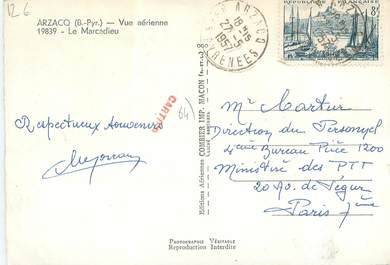 126
ARZACQ (B.-Pyr.) — Vue aérienne
19839 - Le Marcadieu
ARZACQ
18H15
27-5
1957
PYRENEES
8F
Respectueux souvenirs
CARTES
64)
Editions Aériennes COMBIER IMP. MACON
Mr Martin
Direction du Personnel
4ème Bureau Pièce 1200
Ministère des PTT
20 Av. de Ségur
Paris 7ème
PHOTOGRAPHIE VÉRITABLE
Reproduction Interdite